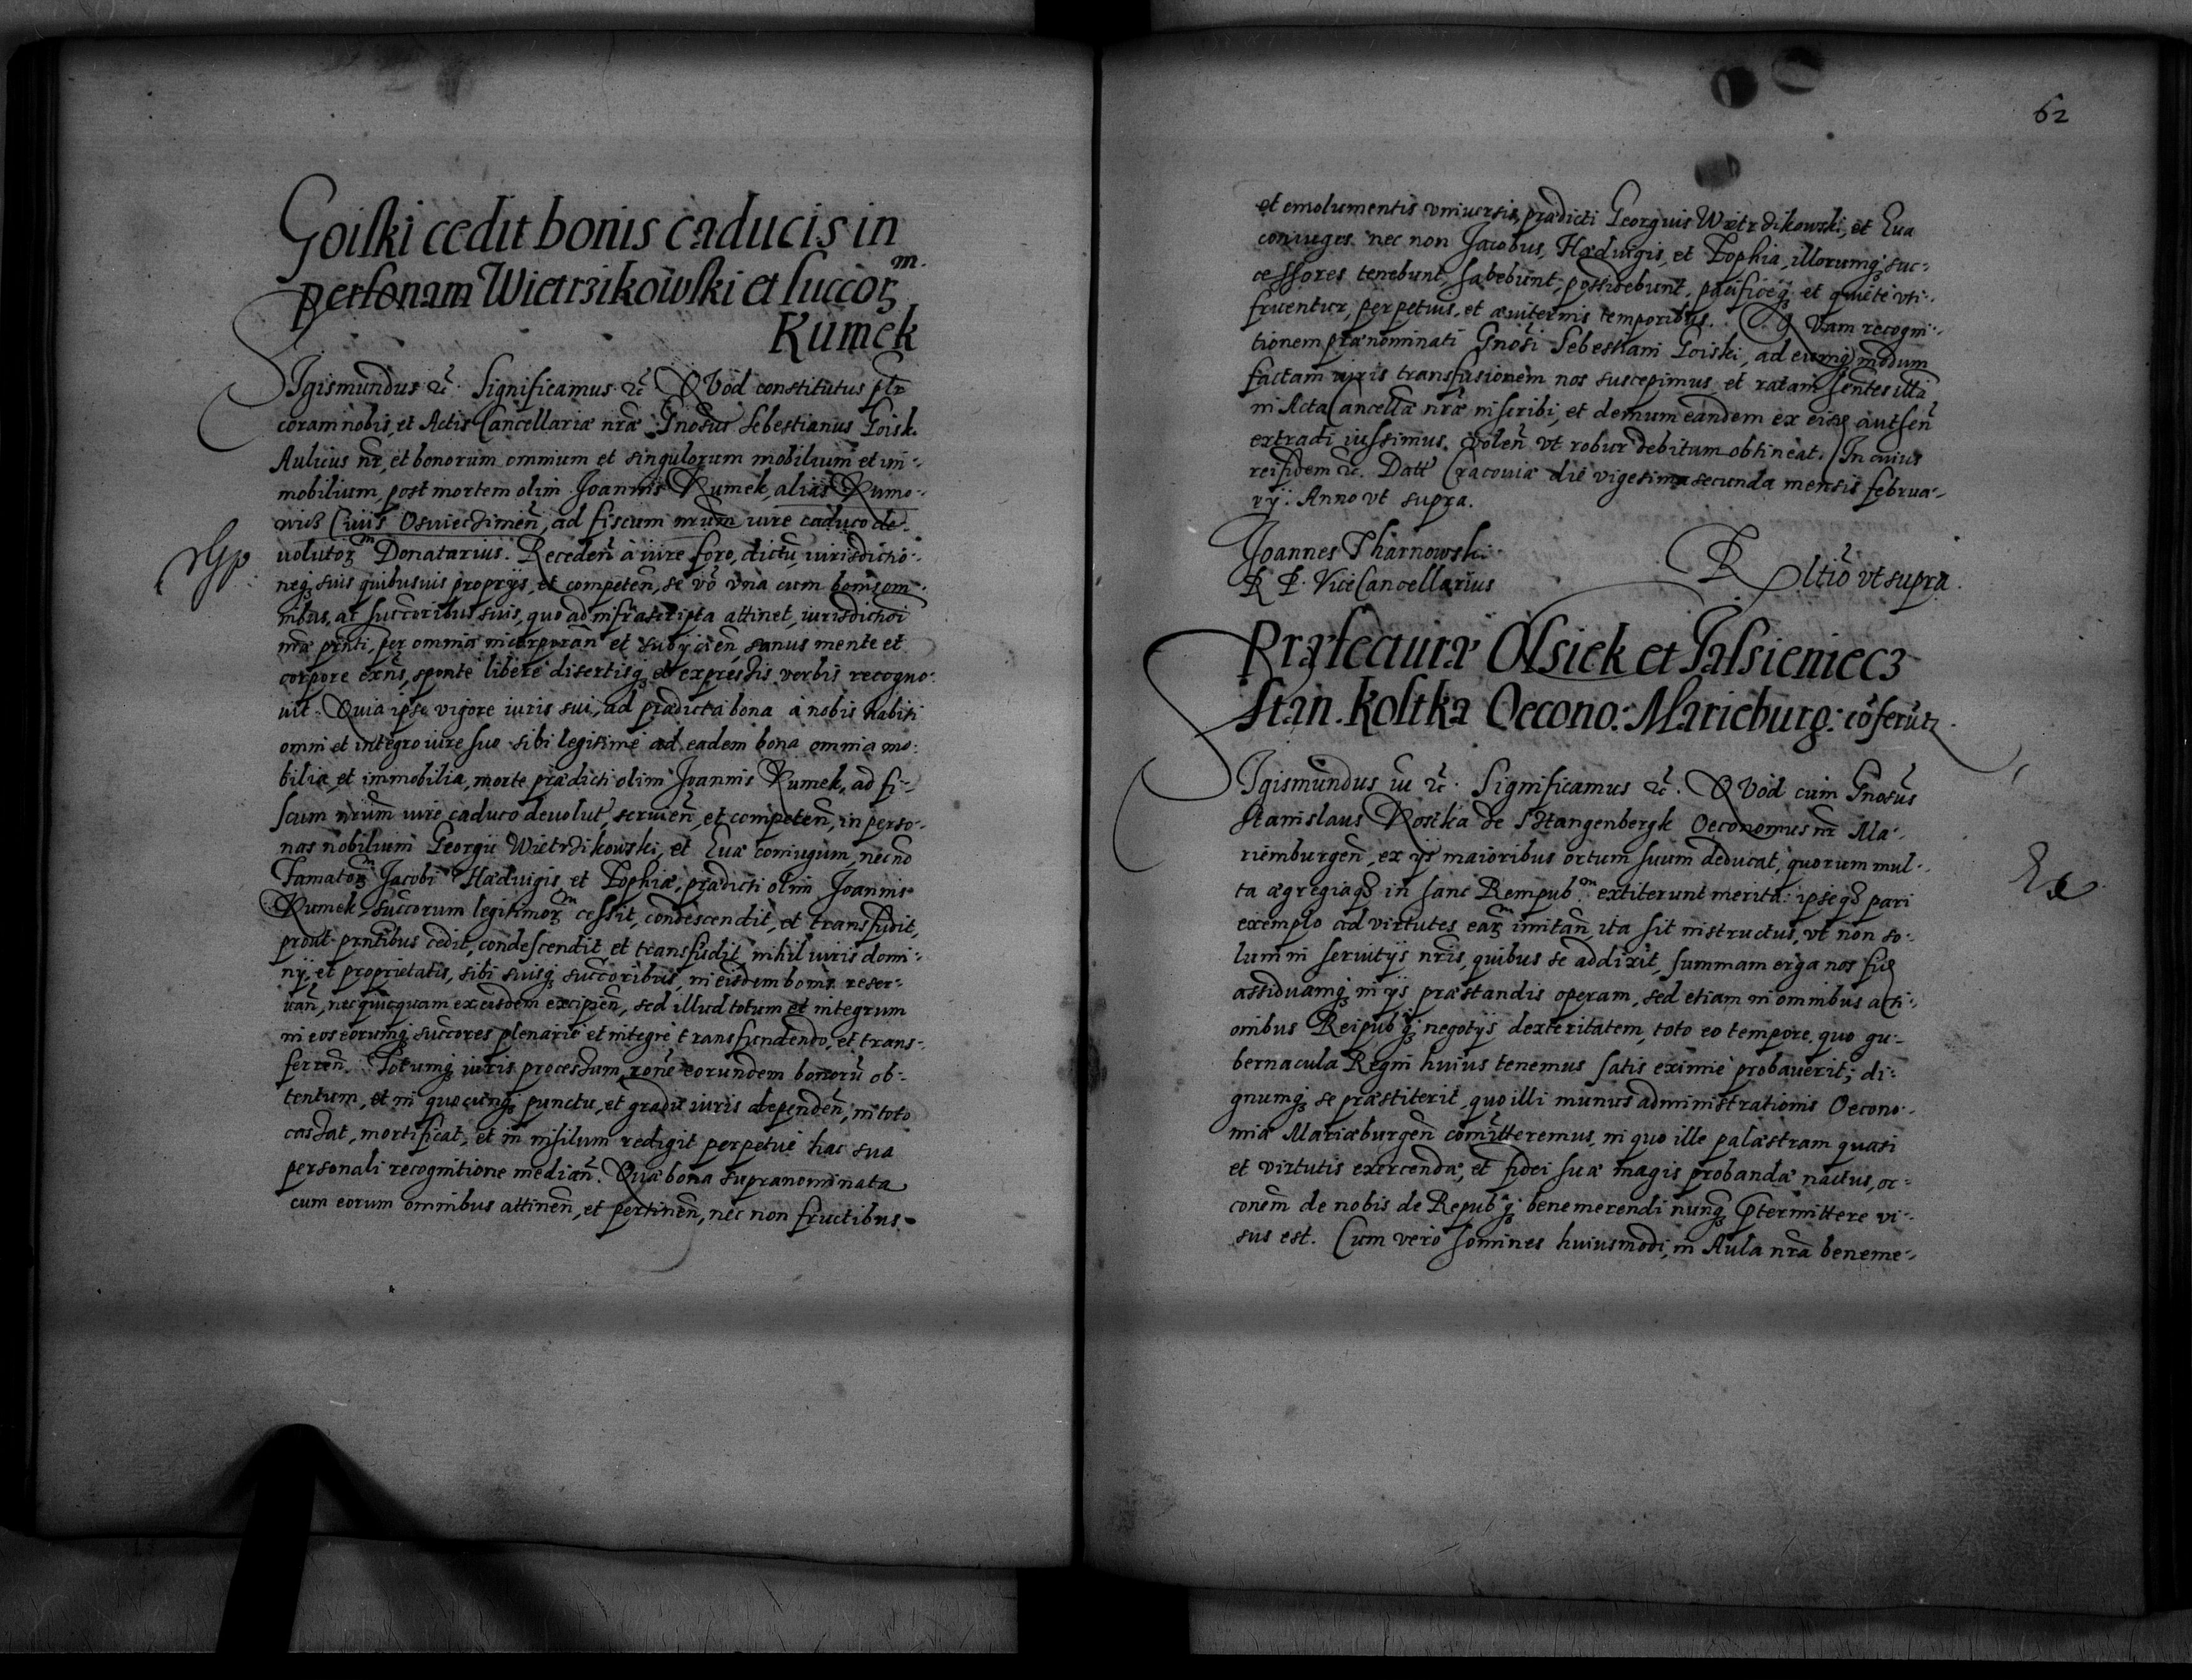 Goiski cedit bonis caducis in
personam Wietrzikowski et succoꝝ m.
Kumek
Sigismundus ꝛc̃. Significamus ꝛc̃ Qvod constitutus pl̃r
coram nobis, et Actis Cancellariæ nr̃æ Gnosus Sebestianus Goisk.
Aulicus nr̃, et bonorum omnium et singulorum mobilium et im-
mobilium, post mortem olim Joannis Kumek, alias Kumo-
wicz Civis Osviecżimeñ, ad fiscum nrũm iure caduco de-
volutoꝝ m Donatarius. Recedeñ à iure foro, dictũ, iurisdictio-
neq3 suis quibusuis proprijs, et competeñ, se vo᷃ vna cum bonis om-
nibus, ac succ̃oribus suis, quo ad infrascripta attinet, iurisdictioi
nr̃æ prñti, per omnia incorporañ et subijcieñ, sanus mente et
corpore exñs, sponte libere disertisq3 et expressis verbis recogno-
uit. Quia ipse vigore iuris sui, ad prædicta bona à nobis habiti
omni et integro iure suo sibi legitime ad eadem bona omnia mo-
bilia, et immobilia, morte prædicti olim Joannis Kumek, ad fi-
scum nrũm iure caduco deuolut̃, servieñ, et competeñ, in perso-
nas nobilium Georgii Wietrżikowski, et Euæ coniugum, necno᷃
Famatoꝝ m Jacobi Hæduigis, et Zophiæ, prædicti olim Joannis
Kumek, succ̃orum legitimoꝝ m cessit, condescendit, et transfudit,
prout prñtibus cedit, condescendit et transfudit, nihil iuris domi-
nij, et proprietatis, sibi suisq3 succ̃oribus, in eisdem bonis reser-
vañ, nec quicquam ex eisdem excipieñ, sed illud totum et integrum
in eos eorumq3 succ̃ores plenariè et integrè transfundendo, et trans-
ferreñ. Totumq3 iuris processum, rõne eorundem bonorũ ob-
tentum, et in quocunq3 punctu, et gradu iuris dependeñ, in toto
cassat, mortificat, et in nihilum redigit perpetuè hac sua
personali recognitione mediañ. Quæ bona supranominata
cum eorum omnibus attineñ, et pertineñ, nec non fructibus
62
et emolumentis vniuersis, prædicti Georgius Wietrżikowski, et Eua
coniuges nec non Jacobus, Hæduigis, et Zophia, illorumq3 suc-
cessores tenebunt, habebunt, possidebunt, pacificeq3 et quiete vti-
fruentur, perpetuis, et æuiternis temporibus. Quam recogni-
tionem prænominati Gnosi Sebestiani Goiski, ad eumq3 modum
factam iuris transfusionem nos suscepimus et ratam
in Acta Cancellæ nr̃æ inscribi, et demum eandem ex eisd
extradi iussimus. Voleñ vt robur debitum obtineat. In cuius
rei fidem ꝛc̃. Datt̃ Cracouiæ die vigesima secunda mensis februa-
rij. Anno vt supra.
Joannes Tharnowski
R. P. ViceCancellarius
R
Rltiõ vt supra.
Præfecturæ Olsiek et Jalsieniecz
Stan. Kostka Oecono: Marieburg: cõferũtr.
Sigismundus iii ꝛc̃. Significamus ꝛc̃. Qvod cum Gnosus
Stanislaus Kostka de Sthangenbergk Oeconomus nr̃ Ma-
riemburgeñ, ex ijs maioribus ortum suum deducat, quorum mul-
ta ægregiaq3 in hanc Rempub. extiterunt merita: ipseq3 pari
exemplo ad virtutes eaꝝ m imitañ, ita sit instructus, vt non so-
lum in seruitijs nr̃is, quibus se addixit, summam erga nos fid
assiduamq3 in ijs præstandis operam, sed etiam in omnibus acti-
onibus Reipub q3 negotijs dexteritatem, toto eo tempore, quo gu-
bernacula Regni huius tenemus satis eximiè probauerit; di-
gnumq3 se præstiterit, quo illi munus administrationis Oecono-
miæ Mariæburgeñ com̃itteremus, in quo ille palæstram quasi
et virtutis exercendæ, et fidei suæ magis probandæ nactus, oc-
conem̃ de nobis de Repub q3 benemerendi nunq3 p̃termittere vi-
sus est. Cum verò homines huiusmodi, in Aula nr̃a beneme-